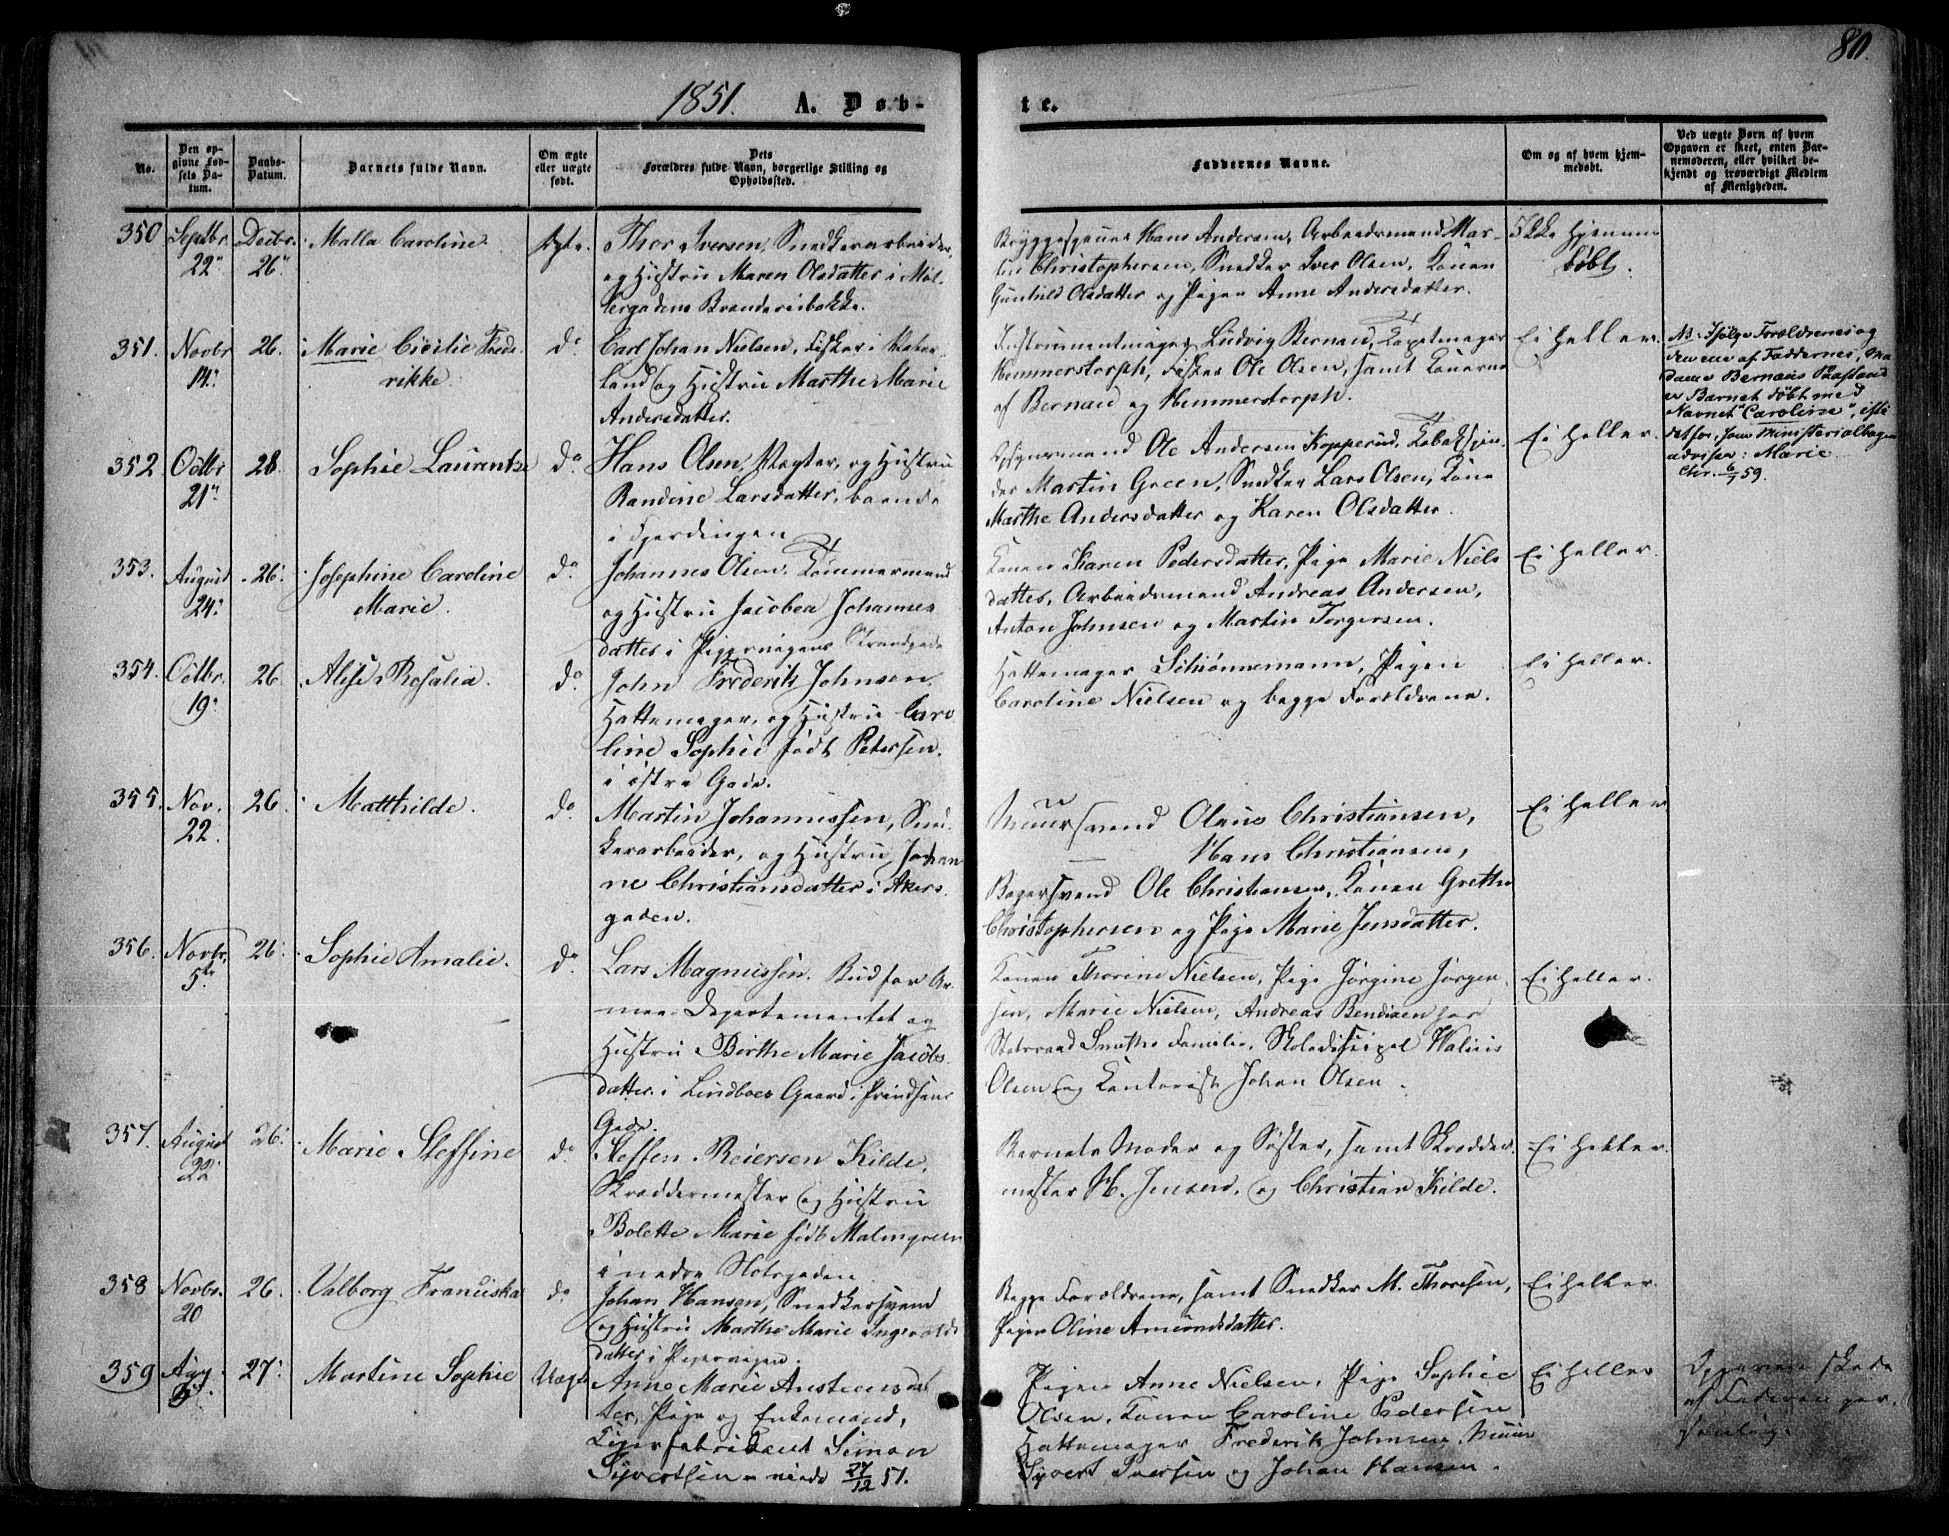 80.
1851. A. Døb-
te.
No.
Den op-
givne Fød-
sels Da-
tum.
Daabs-
Datum.
Barnets fulde Navn.
Om ægte
eller uægte
født.
Dets
Forældres fulde Navn, borgerlige Stilling og
Opholdssted.
Faddernes Navne.
Om og af hvem hjem-
medøbt.
Ved uægte Børn af hvem
Opgaven er skeet, enten Bar-
nemoderen, eller hvilket be-
kjendt og troværdigt Medlem
af Menigheden.
350 Septbr. 22" Decbr. 26" Malla Caroline. Ægte.
Thor Iversen, Snedkerarbeider,
og Hustru Maren Olsdatter i Møl-
lergadens Brænderibakke.
Bryggesvend Hans Andersen, Arbeidsmand Mar-
tin Christophersen, Snedker Iver Olsen, Konen
Gunhild Olsdatter og Pigen Anne Andersdatter.
Ikke hjemme-
døbt.
351. Novbr 14. 26. Marie Cicilie Frede-
rikke. do
Carl Johan Nielsen, Fisker i Vater-
land, og Hustru Marthe Marie
Andersdatter.
Instrumentmager Ludvig Bernau, Tapetmager
Hemmerstorph, Fisker Ole Olsen, samt Konerne
af Bernau og Hemmerstorph.
Ei heller.
NB. Ifølge Forældrenes og
den ene af Faddernes, Ma-
dame Bernaus Paastand
er Barnet døbt med
Navnet "Caroline", iste-
detfor, som Ministerialbogen
udviser: Marie.
Chr. 6/7 59.
352 Octbr 21" 28. Sophie Laurentze do
Hans Olsen, Vægter, og Hustru
Randine Larsdatter, boende
i Fjerdingen
Opsynsmand Ole Andersen Kopperud, Tobakspin-
der Martin Green, Snedker Lars Olsen, Kone
Marthe Andersdatter og Karen Olsdatter.
Ei heller.
353. August 24. 26. Josephine Caroline
Marie. do
Johannes Olsen, Tømmermand
og Hustru Jacobea Johannes-
datter i Pipervigens Strandgade
Konen Karen Pedersdatter, Pige Marie Niels-
datter, Arbeidsmand Andreas Andersen,
Anton Johnsen og Martin Torgersen.
Ei heller.
354. Octbr. 19. 26. Alise Rosalia. do
John Frederik Johnsen,
Hattemager, og Hustru Caro-
line Sophie født Petersen.
i østre Gade.
Hattemager Schønnemann, Pigen
Caroline Nielsen og begge Forældrene.
Ei heller.
355. Nov. 22. 26. Matthilde. do
Martin Johannessen, Sned-
kerarbeider, og Hustru Johan-
ne Christiansdatter i Akers-
gaden.
Muursvend Olaus Christiansen,
Hans Christiansen,
Bagersvend Ole Christiansen, Konen Grethe
Christophersen og Pige Marie Jensdatter.
Ei heller
356. Novbr. 5te 26. Sophie Amalie. do
Lars Magnussen, Bud for Ar-
mee-Departementet og
Hustru Birthe Marie Jacobs-
datter i Lindboes Gaard i Prindsens
Gade.
Konen Thorine Nielsen, Pige Jørgine Jørgen-
sen, Marie Nielsen, Andreas Bendixen hos
Statsraad Smiths Familie, Skoledisipel Walius
Olsen og Kontorist Johan Olsen.
Ei heller.
357. August 22 26. Marie Steffine do
Steffen Reiersen Kilde,
Skræddermester og Hustru
Bolette Marie født Malmgreen
i nedre Slotsgaden
Barnets Moder og Søster, samt Skrædder-
mester H. Jensen, og Christian Kilde.
Ei heller.
358 Novbr. 20 26. Valborg Franciska do
Johan Hansen, Snedkersvend
og Hustru Marthe Marie Ingevolds-
datter i Pipervigen.
Begge Forældrene, samt Snedker M. Thoresen,
Pigen Oline Amundsdatter.
Ei heller.
359 Aug. 27. Martine Sophie Uægte
Anne Marie Austeensdat-
ter, Pige og Enkemand,
Sigerfabrikant Simon
Syvertsen - viede 27/12 51.
Pigen Anne Nielsen, Pige Sophie
Olsen, Konen Caroline Pedersen
Hattemager Frederik Johnsen, Muur
Syvert Iversen og Johan Hansen.
Ei heller
Opgaven skede
af Faderen per-
sonlig.